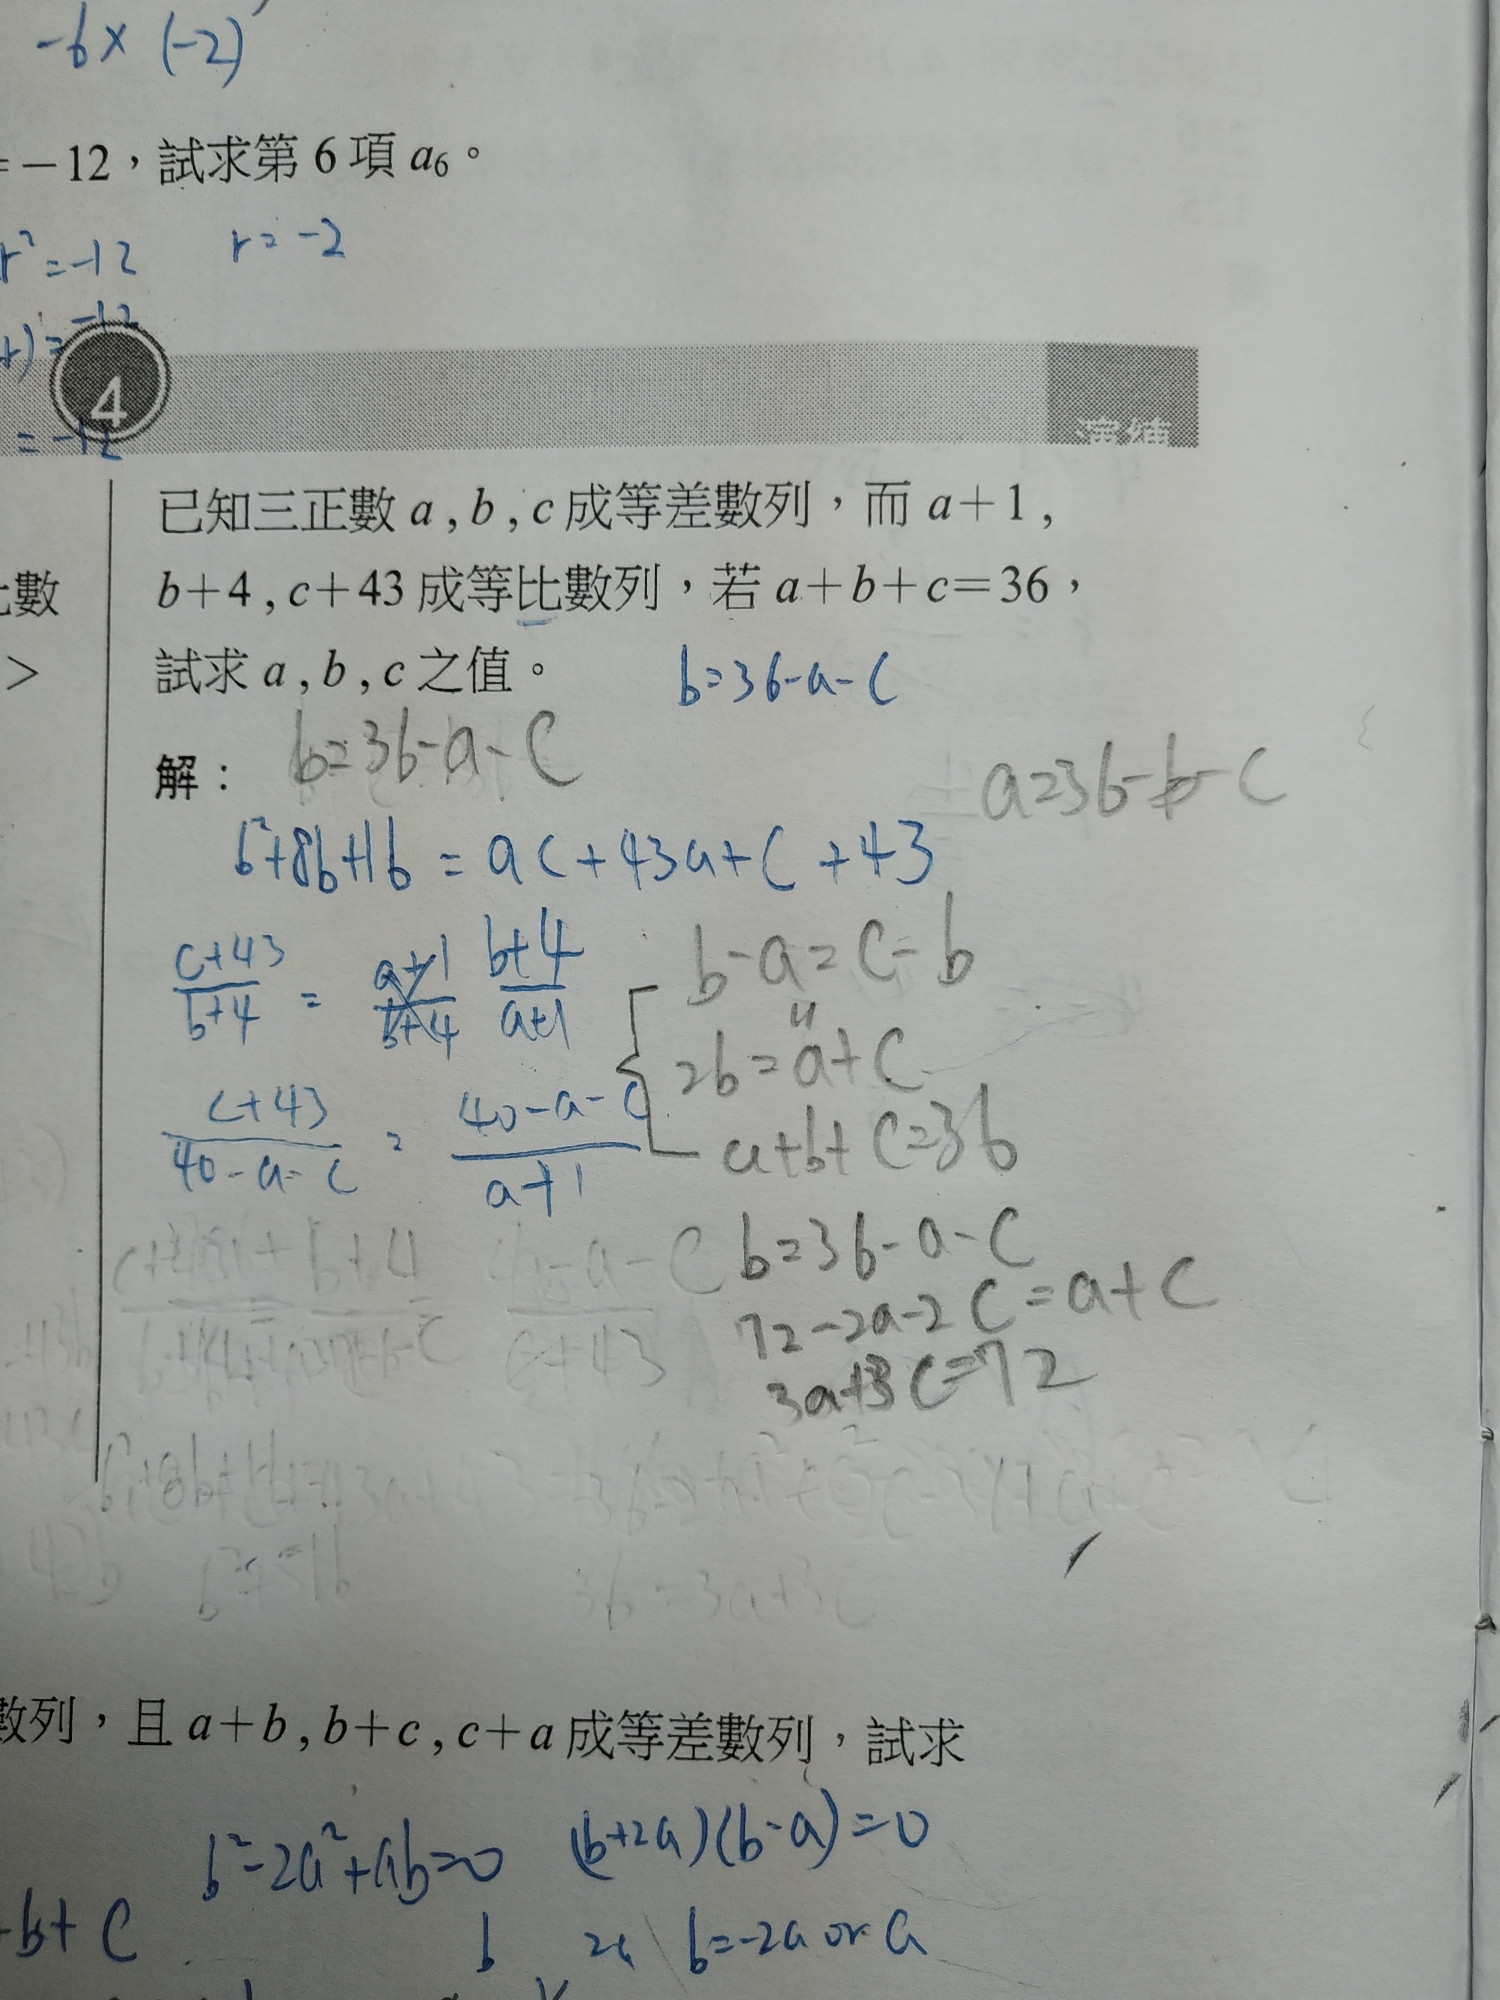 -6×(-2)
=-12，試求第 6 項 a₆。
r²=-12 r=-2
=-12
4
演練
=-12
已知三正數 a , b , c 成等差數列，而 a+1 ,
比數 b+4 , c+43 成等比數列，若 a+b+c=36，
> 試求 a , b , c 之值。 b=36-a-c
解： b=36-a-c
a=36-b-c
b²+8b+16=ac+43a+c+43
(c+43)/(b+4) = (b+4)/(a+1)
b-a=c-b
2b=a+c
(c+43)/(40-a-c) = (40-a-c)/(a+1)
a+b+c=36
b=36-a-c
72-2a-2c=a+c
3a+3c=72
36=3a+3c
數列，且 a+b , b+c , c+a 成等差數列，試求
b²-2a²+ab=0 (b+2a)(b-a)=0
b+c b 2a b=-2a or a